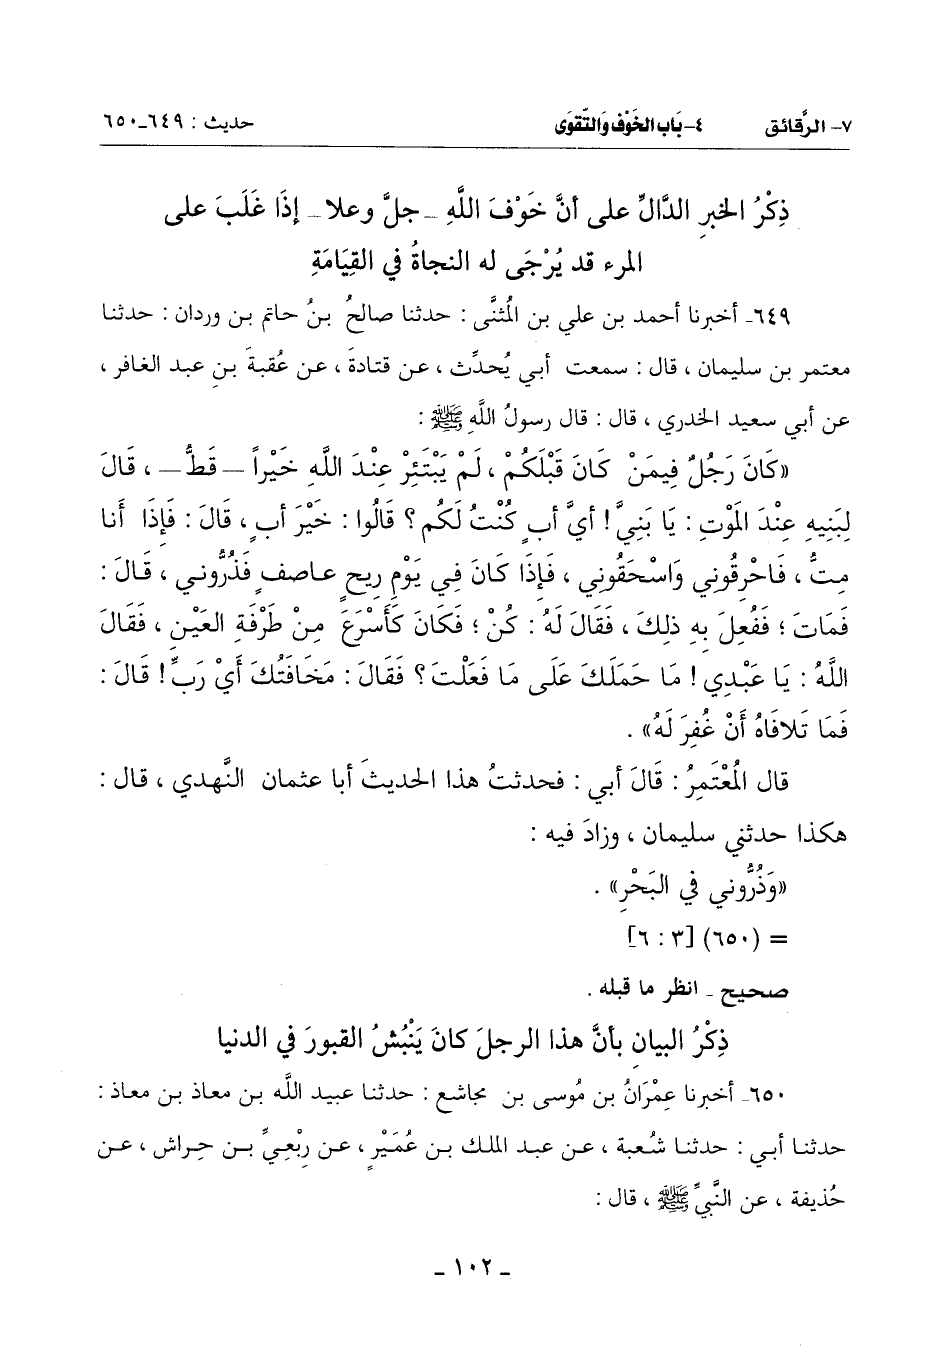 ٧- الرَّقائق ٤- بَاب الخَوْف وَالتَّقوَى حديث : ٦٤٩-٦٥٠
ذِكْرُ الخبرِ الدَّالِّ على أنَّ خَوْفَ اللَّهِ -جلَّ وعلا- إذَا غَلَبَ على
المرء قد يُرْجَى له النجاةُ في القِيَامَةِ
٦٤٩- أخبرنا أحمد بن علي بن المُثنَّى : حدثنا صالحُ بنُ حاتم بن وردان : حدثنا
معتمر بن سليمان ، قال : سمعت أبي يُحدِّث ، عن قتادةَ ، عن عُقبةَ بنِ عبد الغافر ،
عن أبي سعيد الخدري ، قال : قال رسولُ اللَّهِ ﷺ :
«كَانَ رَجُلٌ فِيمَنْ كَانَ قَبْلَكُمْ ، لَمْ يَبْتَئِرْ عِنْدَ اللَّهِ خَيْراً - قَطُّ - ، قَالَ
لِبَنِيهِ عِنْدَ المَوْتِ : يَا بَنِيَّ ! أيَّ أبٍ كُنْتُ لَكُم ؟ قَالُوا : خَيْرَ أبٍ ، قَالَ : فَإذَا أنا
مِتُّ ، فَاحْرِقُونِي وَاسْحَقُونِي ، فَإذَا كَانَ فِي يَوْمِ رِيحٍ عاصفٍ فَذُرُّونِي ، قَالَ :
فَمَاتَ ؛ فَفُعِلَ بِهِ ذلِكَ ، فَقَالَ لَهُ : كُنْ ؛ فَكَانَ كَأَسْرَعَ مِنْ طَرْفَةِ العَيْنِ ، فَقَالَ
اللَّهُ : يَا عَبْدِي ! مَا حَمَلَكَ عَلَى مَا فَعَلْتَ ؟ فَقَالَ : مَخَافَتُكَ أيْ رَبِّ ! قَالَ :
فَمَا تَلافَاهُ أَنْ غُفِرَ لَهُ» .
قال المُعْتَمِرُ : قَالَ أبي : فحدثتُ هذا الحديثَ أبا عثمان النَّهدي ، قال :
هكذا حدثني سليمان ، وزادَ فيه :
«وَذُرُّوني في البَحْرِ» .
= (٦٥٠) [٣ : ٦]
صحيح - انظر ما قبله .
ذِكْرُ البيان بأنَّ هذا الرجلَ كانَ يَنْبُشُ القبورَ في الدنيا
٦٥٠- أخبرنا عِمْرَانُ بن مُوسى بن مجاشع : حدثنا عبيد اللَّه بن معاذ بن معاذ :
حدثنا أبي : حدثنا شُعبة ، عن عبد الملك بن عُمَيْرٍ ، عن رِبْعِيِّ بن حِراش ، عن
حُذيفة ، عن النَّبيِّ ﷺ ، قال :
- ١٠٢ -